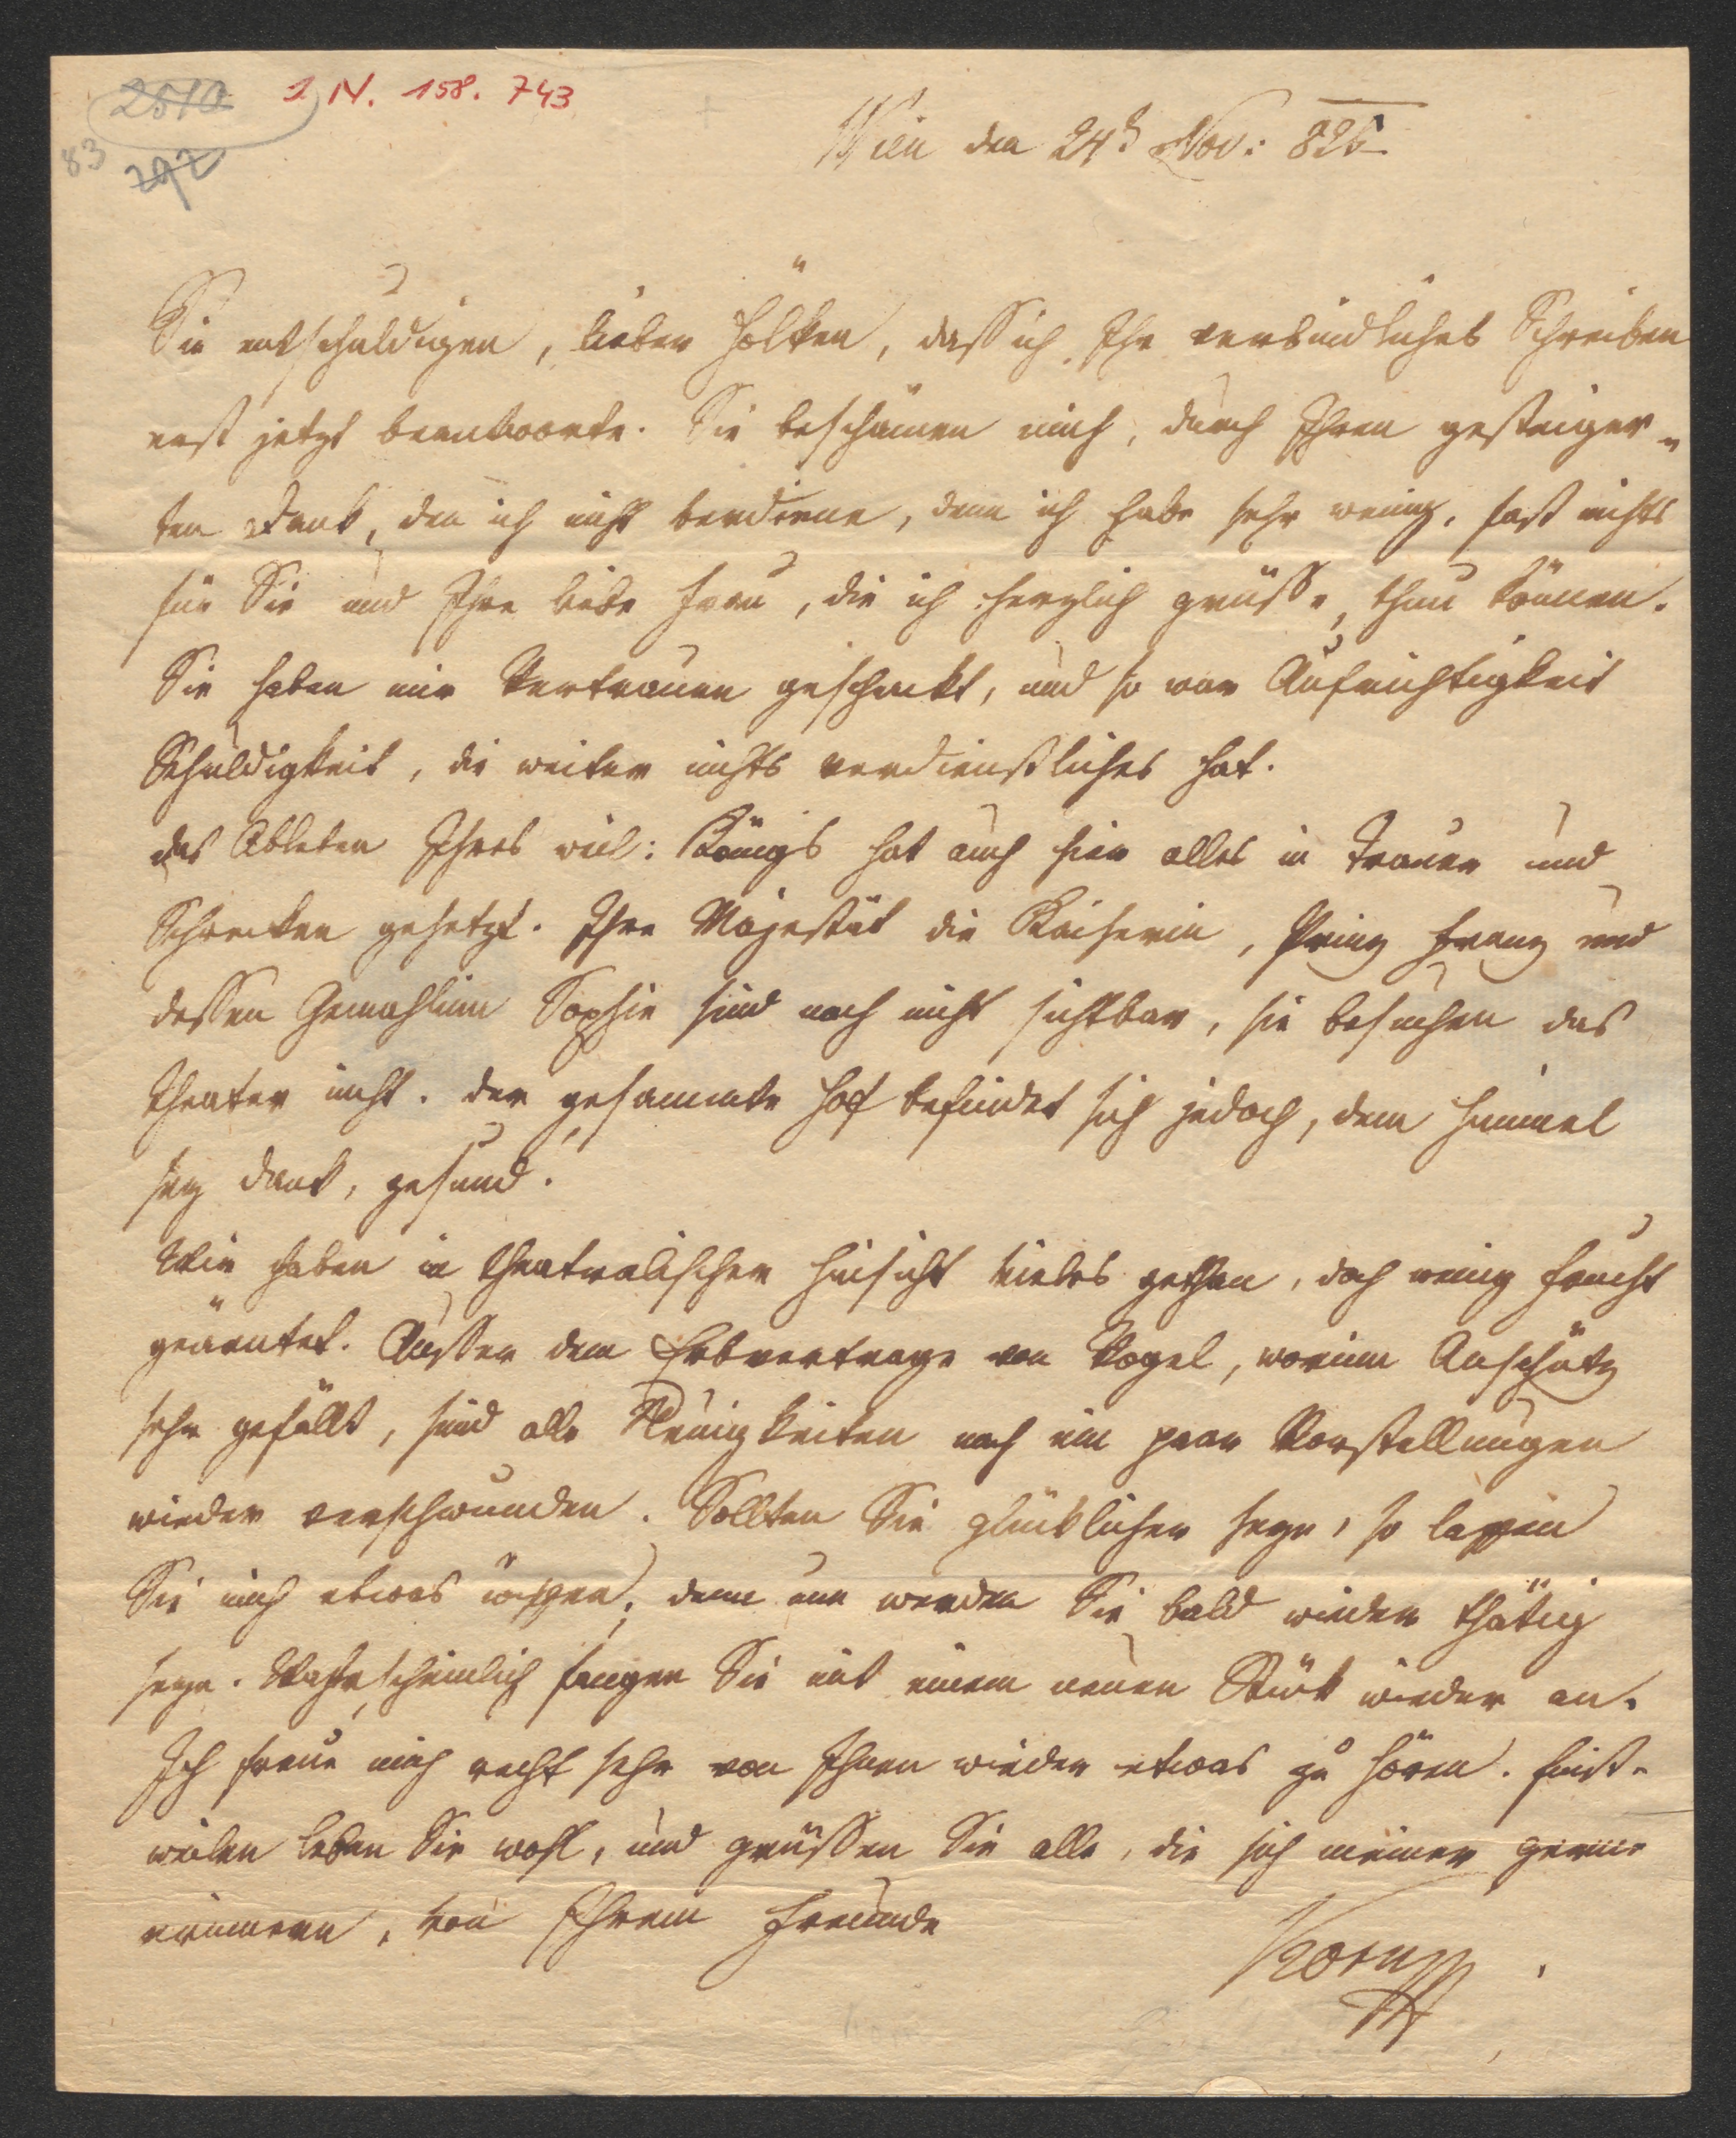 2510 I. N. 158. 743
83
292
Wien den 24t Nov: 825
Sie entschuldigen, lieber Hölken, dass ich Ihr verbindliches Schreiben
erst jetzt beantworte. Sie beschämen mich, durch Ihren gesteiger„
ten Dank, den ich nicht verdiene, denn ich habe sehr wenig, fast nichts
für Sie und Ihre liebe Frau, die ich herzlich grüsse, thun können.
Sie haben mir Vertrauen geschenkt, und so war Aufrichtigkeit
Schuldigkeit, die weiter nichts verdienstliches hat.
das Ableben Ihres viel: Königs hat auch hier alles in Trauer und
Schrecken gesetzt. Ihre Majestät die Kaiserin, Prinz Franz und
dessen Gemahlinn Sophie sind noch nicht sichtbar, sie besuchen das
Theater nicht. der gesammte Hof befindet sich jedoch, dem Himmel
sey dank, gesund.
Wir haben in theatralischer Hinsicht vieles gethan, doch wenig Frucht
geärntet. Ausser dem Erbvertrage von Vogel, worinn Anschütz
sehr gefällt, sind alle Neuigkeiten nach ein paar Vorstellungen
wieder verschwunden. Sollten Sie glücklicher seyn, so lassen
Sie mich etwas wissen, denn nun werden Sie bald wieder thätig
seyn. Wahrscheinlich fangen Sie mit einem neuen Stück wieder an.
Ich freue mich recht sehr von Ihnen wieder etwas zu hören. Einst„
weilen leben Sie wohl, und grüssen Sie alle, die sich meiner gerne
erinnern, von Ihrem Freunde
Korn